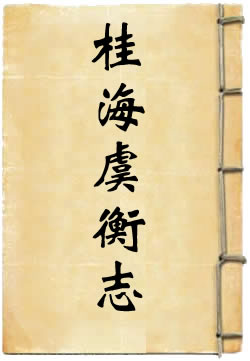 桂海虞衡志